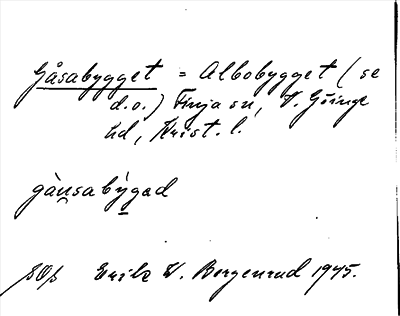 Gåsabygget = Albobygget (se
d.o.) Finja sn, V. Göinge
hd, Krist. l.
gàu̯sabýgad
Erik W. Bergenrud 1945.